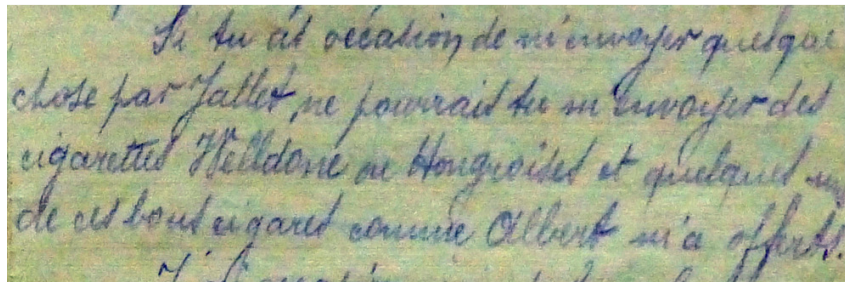 Si tu as occasion de m'envoyer quelque
chose par Jallet, ne pourrais tu m'envoyer des
cigarettes Welldone ou Hongroises et quelques uns
de ces bons cigares comme Albert m'a offerts.